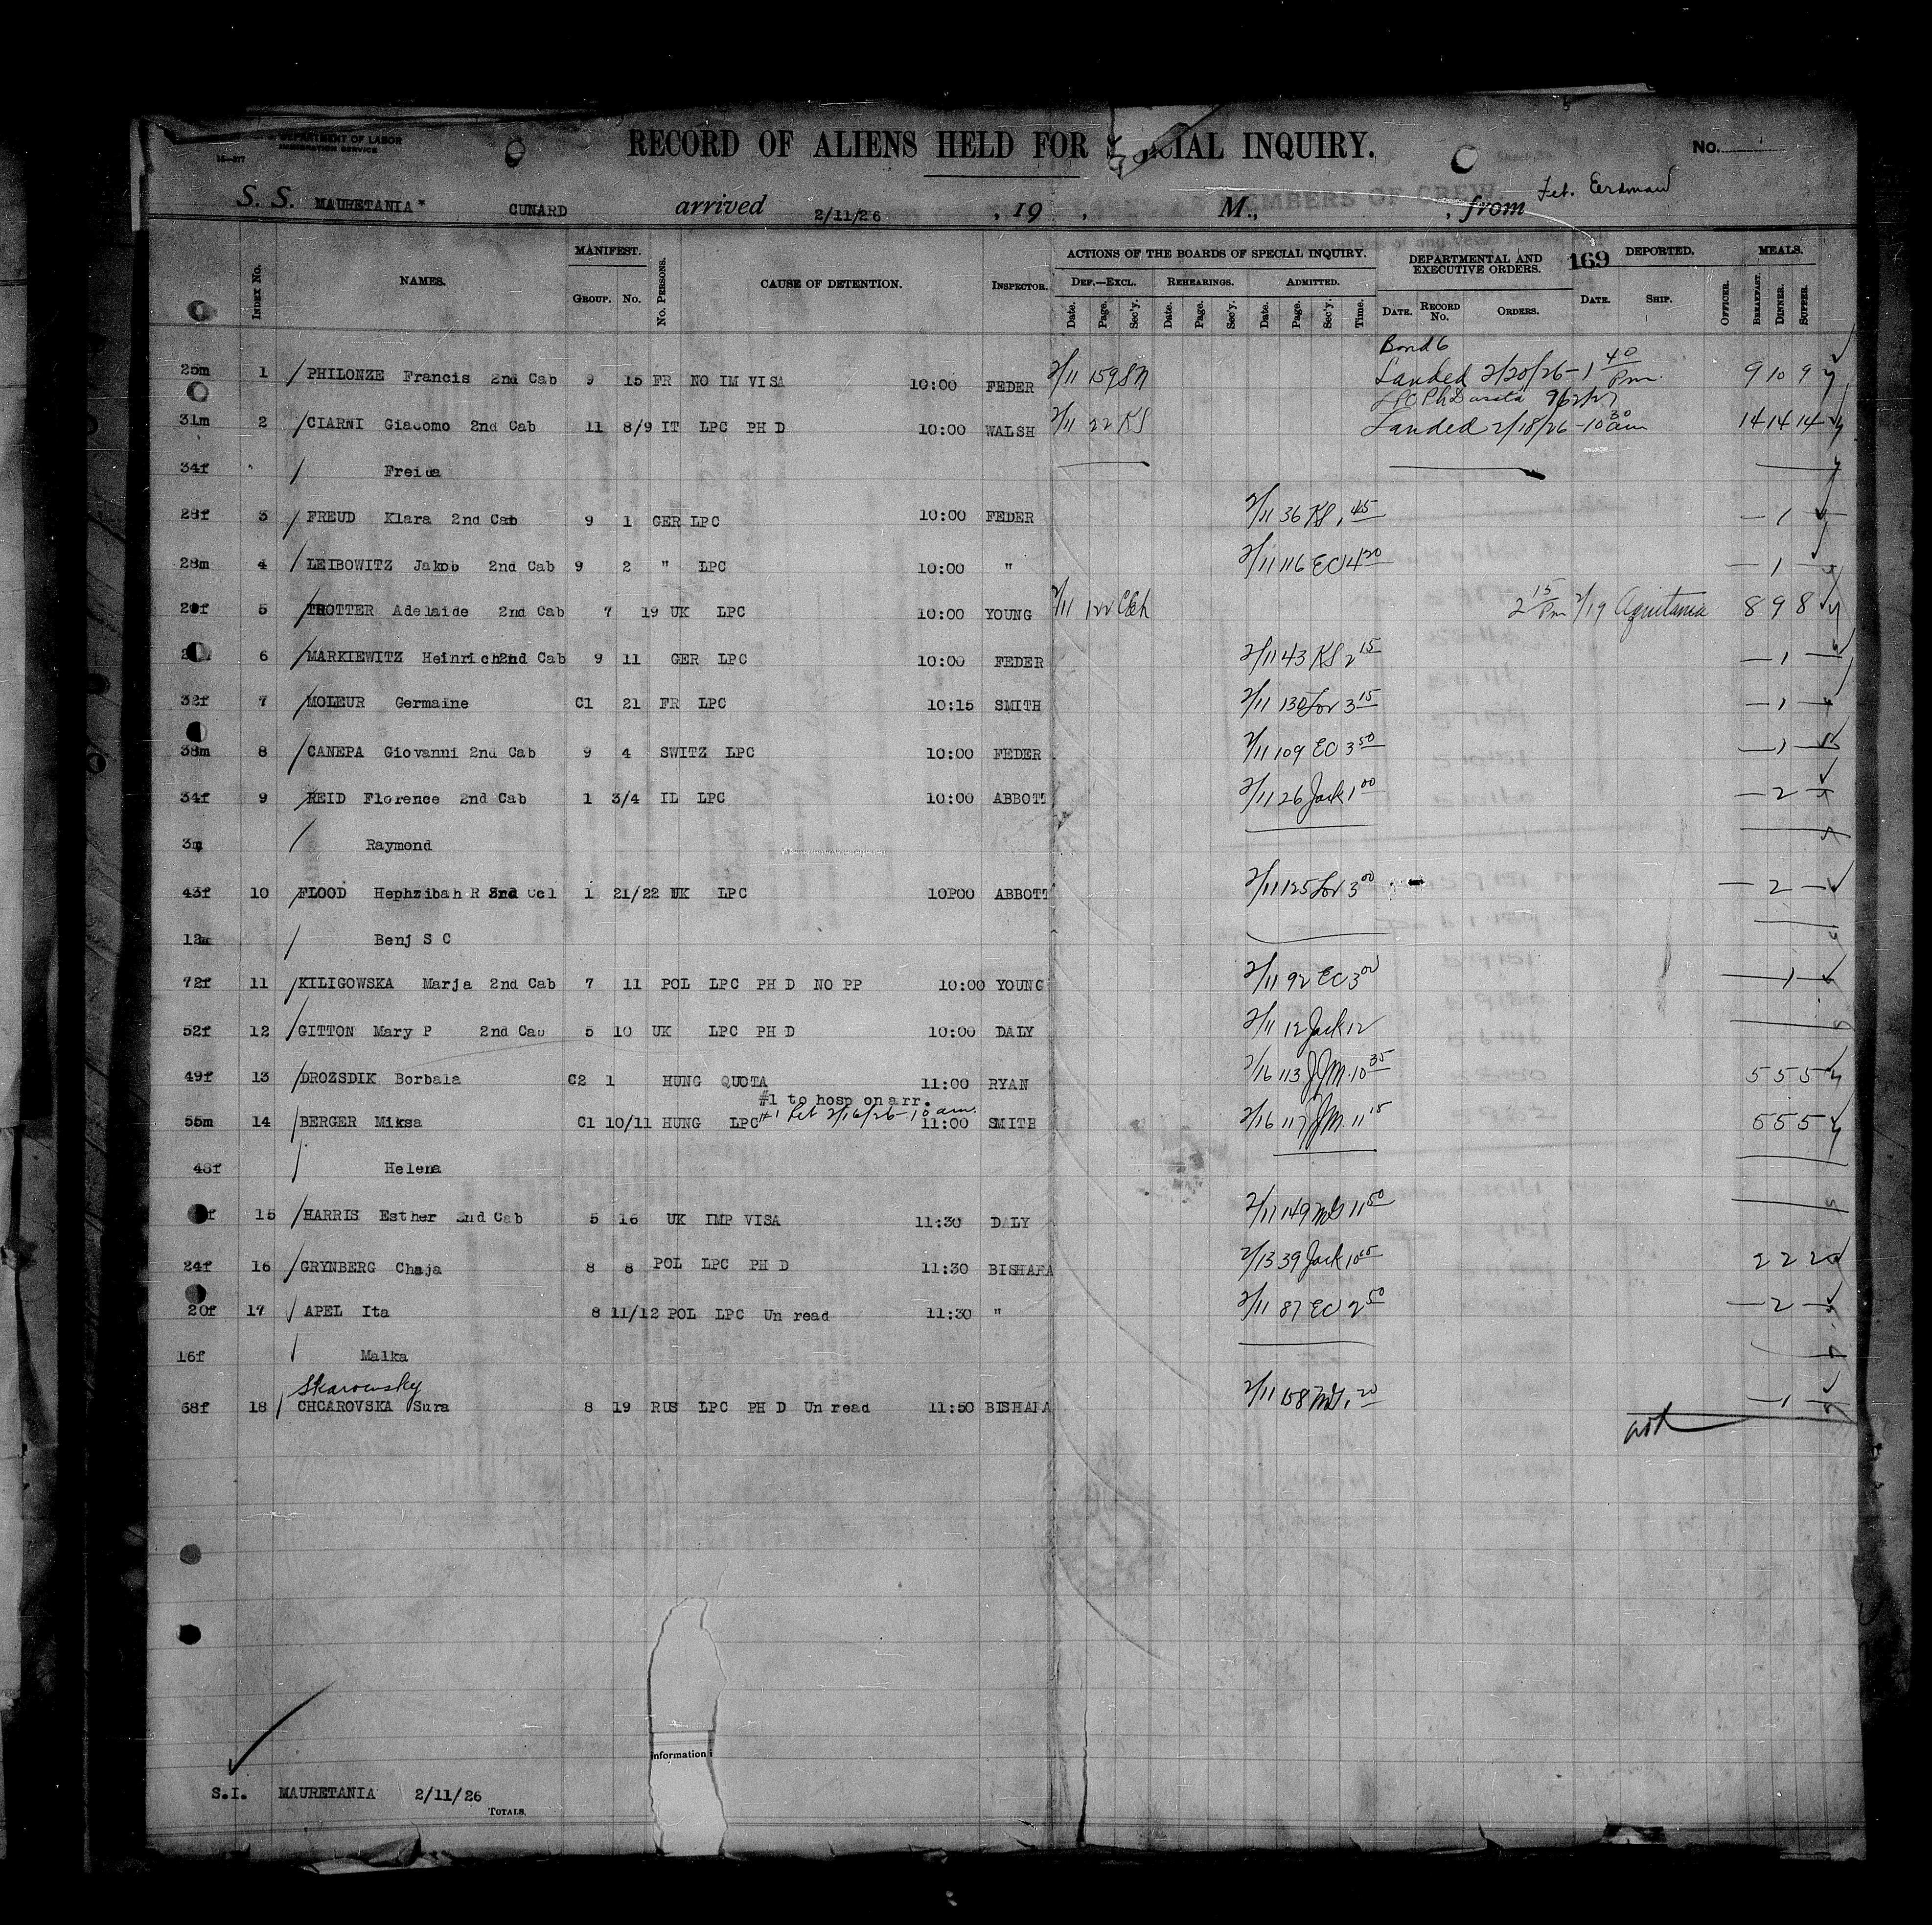 DEPARTMENT OF LABOR
IMMIGRATION SERVICE
RECORD OF ALIENS HELD FOR INQUIRY.
No.
S. S. MAURETANIA" CUNARD arrived 2/11/26 , 19 , M., , from
MEMBERS OF CREW
169
INDEX No. NAMES. MANIFEST. GROUP. No. No. PERSONS. CAUSE OF DETENTION. INSPECTOR. ACTIONS OF THE BOARDS OF SPECIAL INQUIRY. DEPARTMENTAL AND EXECUTIVE ORDERS. DEPORTED. MEALS.
DEF.—EXCL. REHEARINGS. ADMITTED.
Date. Page. Sec'y. Date. Page. Sec'y. Date. Page. Sec'y. Time. DATE. RECORD No. ORDERS. DATE. SHIP. OFFICER. BREAKFAST. DINNER. SUPPER.
Bond 6
25m 1 / PHILONZE Francis 2nd Cab 9 15 FR NO IM VISA 10:00 FEDER 2/11 159 SN Landed 2/20/26 - 1 40 Pm. 9 10 9
31m 2 / CIARNI Giacomo 2nd Cab 11 8/9 IT LPC PH D 10:00 WALSH 2/11 22 KS Landed 2/18/26 - 10 30 am 14 14 14
34f /
28f 3 / FREUD Klara 2nd Cab 9 1 GER LPC 10:00 FEDER 2/11 36 KS 1 45 — 1 —
28m 4 / LEIBOWITZ Jakob 2nd Cab 9 2 " LPC 10:00 " 2/11 116 EC 4 20 — 1 —
5 / TROTTER Adelaide 2nd Cab 7 19 UK LPC 10:00 YOUNG 2/11 122 2 15 Pm 2/19 Aquitania 8 9 8
6 / MARKIEWITZ Heinrich 2nd Cab 9 11 GER LPC 10:00 FEDER 2/11 43 KS 2 15 — 1 —
32f 7 / MOLEUR Germaine C1 21 FR LPC 10:15 SMITH 2/11 130 Lov 3 15 — 1 —
38m 8 / CANEPA Giovanni 2nd Cab 9 4 SWITZ LPC 10:00 FEDER 2/11 109 EC 3 50 — 1 —
34f 9 / REID Florence 2nd Cab 1 3/4 IL LPC 10:00 ABBOTT 2/11 26 Jack 1 00 — 2 —
3m / Raymond
43f 10 / FLOOD Hephzibah R 1 21/22 UK LPC 10P00 ABBOTT 2/11 125 Lov 3 00 — 2 —
/ Benj S C
72f 11 / KILIGOWSKA Marja 2nd Cab 7 11 POL LPC PH D NO PP 10:00 YOUNG 2/11 92 EC 3 00 — 1 —
52f 12 / GITTON Mary P 2nd Cab 5 10 UK LPC PH D 10:00 DALY 2/11 12 Jack 12
49f 13 / DROZSDIK Borbala C2 1 HUNG QUOTA 11:00 RYAN 2/16 113 JJM. 10 35 5 5 5
#1 to hosp on arr.
#1 Ret 2/16/26 - 10 am.
55m 14 / BERGER Miksa C1 10/11 HUNG LPC 11:00 SMITH 2/16 117 JJM. 11 15 5 5 5
48f / Helena
f 15 / HARRIS Esther 2nd Cab 5 16 UK IMP VISA 11:30 DALY 2/11 149 11 50
24f 16 / GRYNBERG Chaja 8 8 POL LPC PH D 11:30 BISHARA 2/13 39 Jack 10 15 2 2 2
20f 17 / APEL Ita 8 11/12 POL LPC Un read 11:30 " 2/11 87 EC 2 50 — 2 —
16f / Malka
Skarowsky
68f 18 / CHCAROVSKA Sura 8 19 RUS LPC PH D Un read 11:50 BISHARA 2/11 158 1 20 — 1 —
Information
S.I. MAURETANIA 2/11/26
TOTALS.